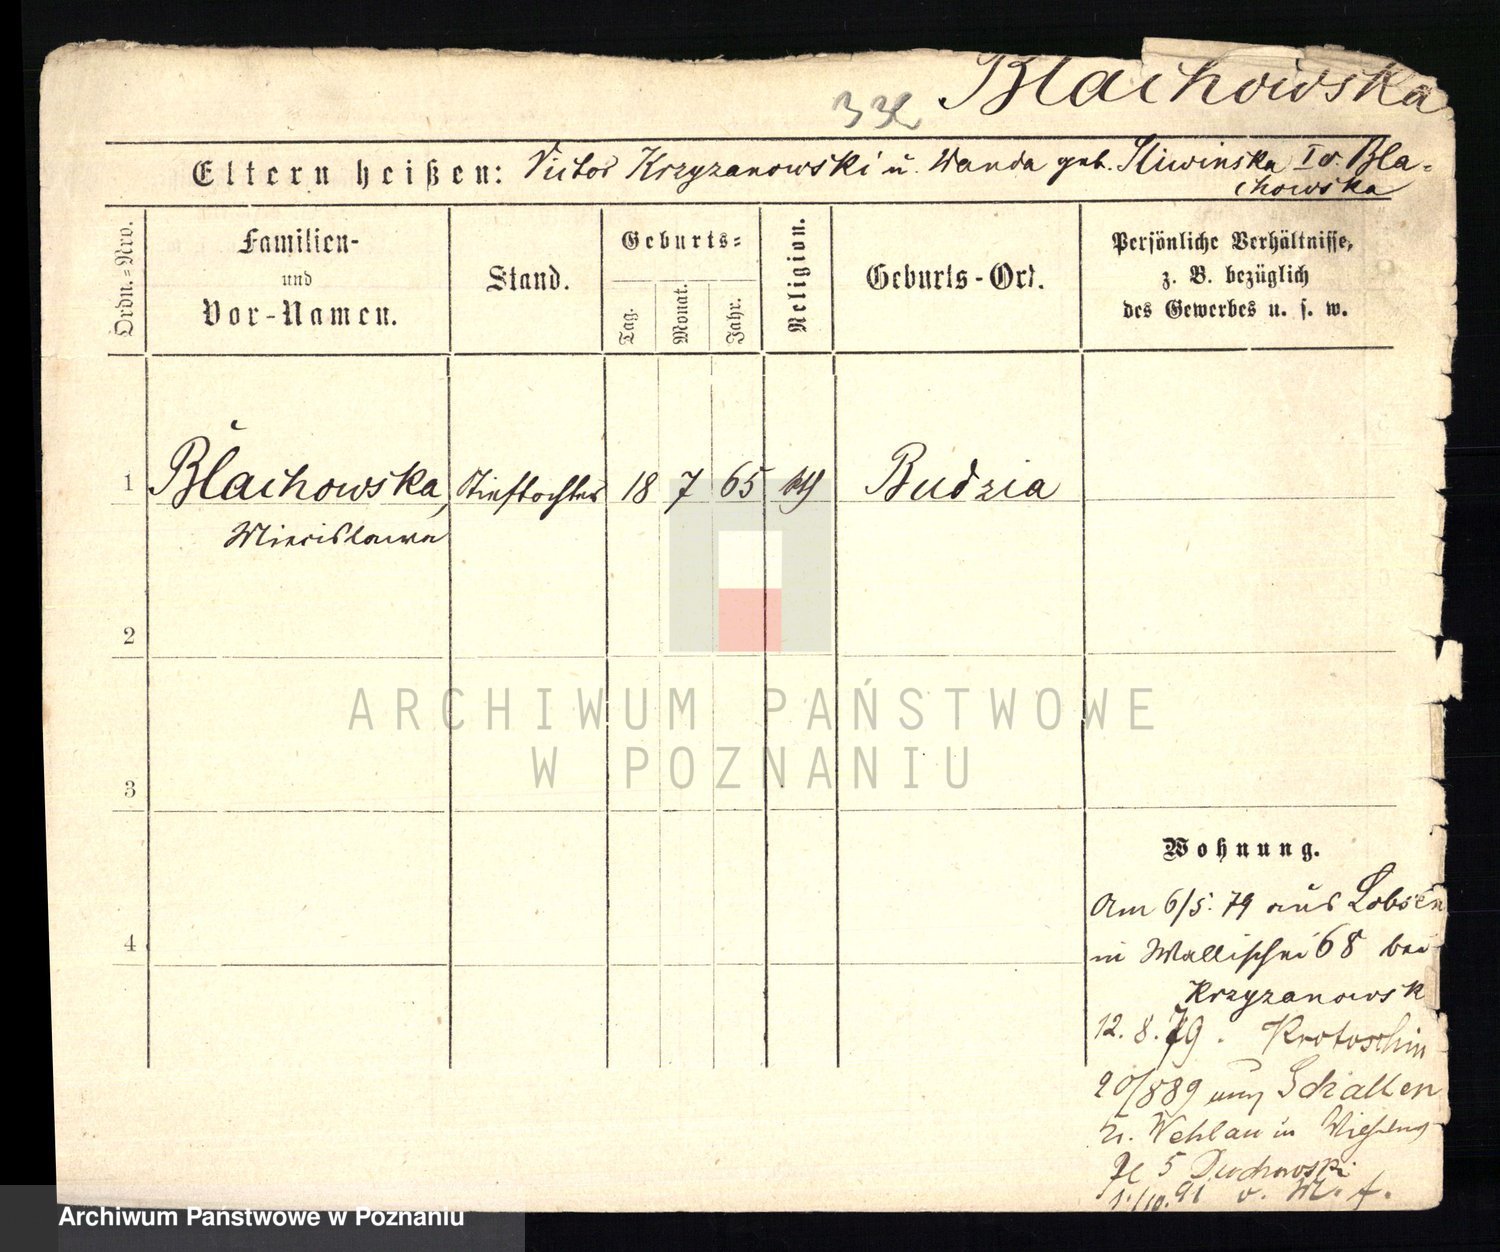 Blachowska
332
Eltern heißen: Victor Krzyzanowski u. Wanda geb. Sliwinska I v. Bla-
chowska
Ordn.-Nro.
Familien-
und
Vor-Namen.
Stand.
Geburts-
Tag.
Monat.
Jahr.
Religion.
Geburts-Ort.
Persönliche Verhältnisse,
z. B. bezüglich
des Gewerbes u. s. w.
1 Blachowska, Stieftochter 18 7 65 kth Budzia
Miecislawa
2
3
4
Wohnung.
Am 6/5. 79 aus Lobsen
in Wallischei 68 bei
Krzyzanowsk
12. 8. 79. Krotoschin
20/889 aus Schallen
n. Wehlau in
5 Duchowski
1/10. 91 v.
ARCHIWUM PAŃSTWOWE
W POZNANIU
Archiwum Państwowe w Poznaniu